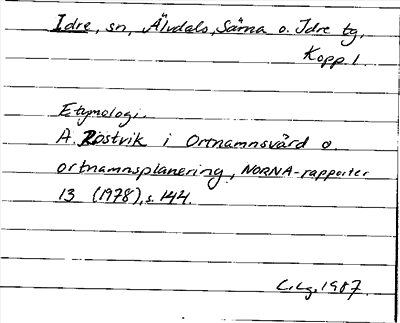 Idre, sn, Älvdals, Särna o. Idre tg,
Kopp. l.
Etymologi.
A. Rostvik i Ortnamnsvård o.
ortnamnsplanering, NORNA-rapporter
13 (1978), s. 144.
C.Lg. 1987